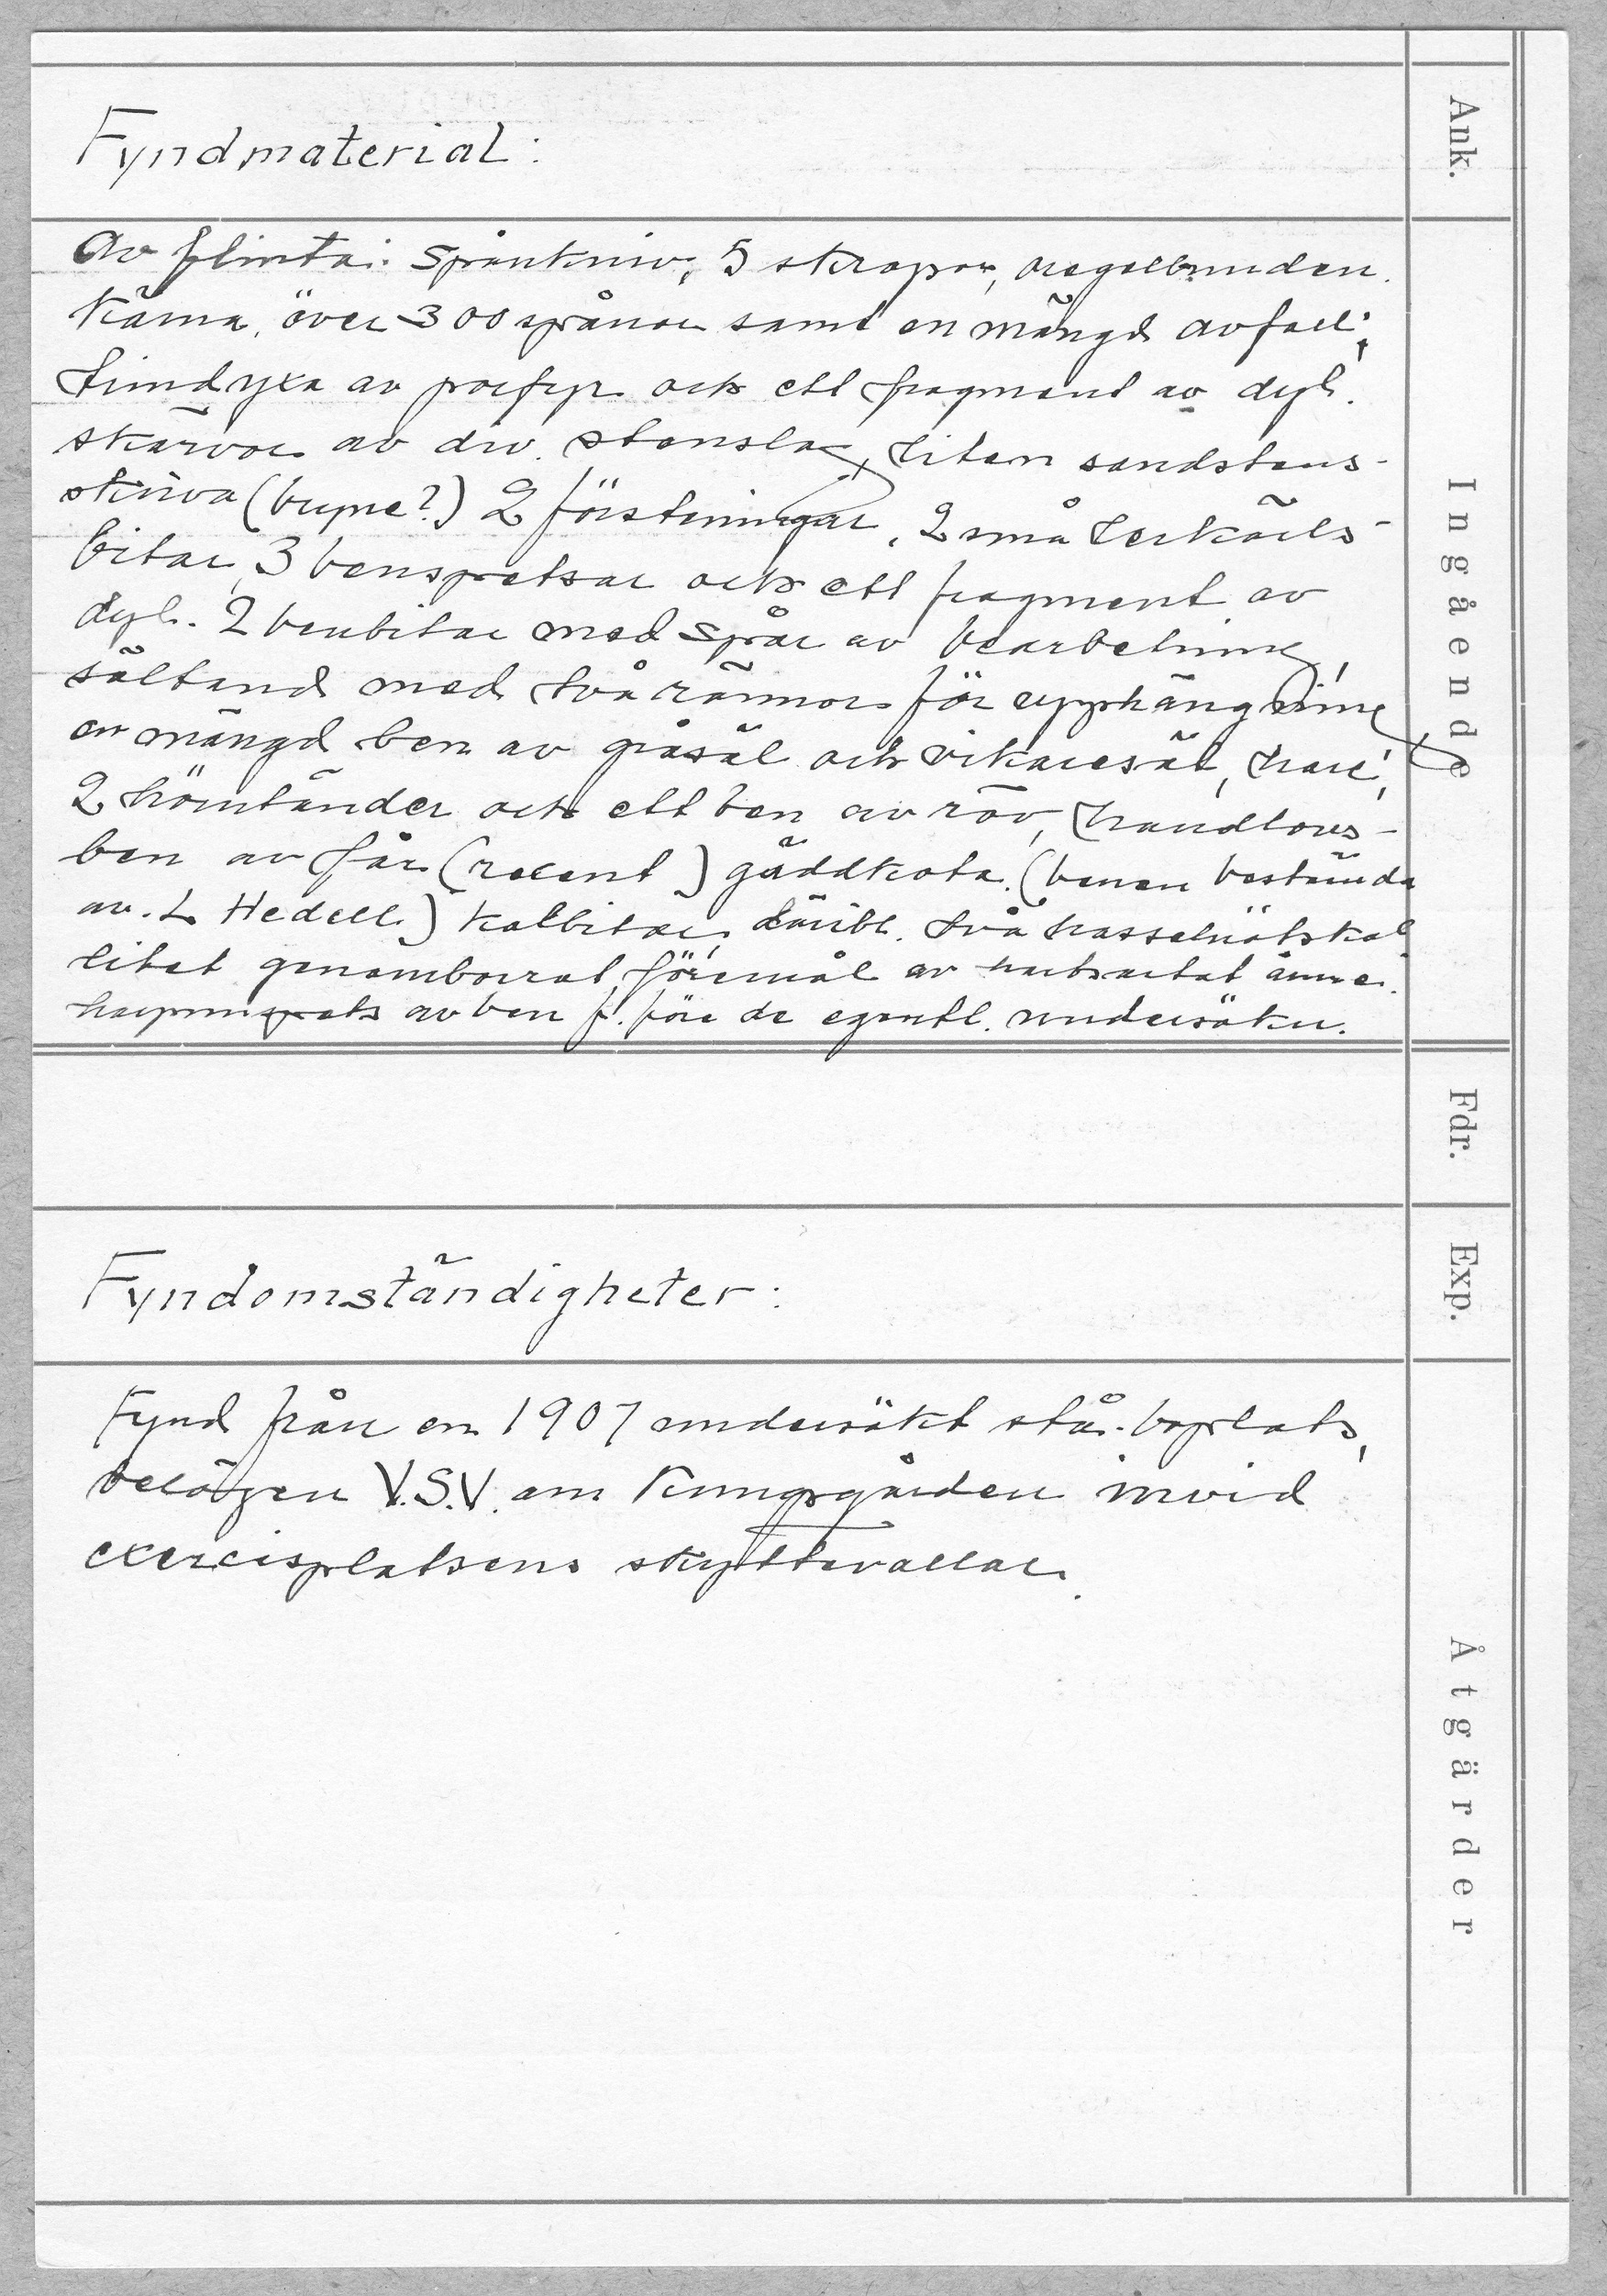 Fyndmaterial:
Av flinta: spånkniv, 5 skrapor, oregelbunden
kärna, över 300 spånor samt en mängd avfall;
trindyxa av porfyr och ett fragment av dyl.
skärvor av div. stenslag, liten sandstens-
skiva (bryne?) 2 försteningar, 2 små lerkärls-
bitar, 3 benspetsar och ett fragment av
dyl. 2 benbitar med spår av bearbetning,
sältand med två rännor för upphängning
en mängd ben av gråsäl och vikaresäl, hare,
2 hörntänder och ett ben av räv, handlovs-
ben av får (recent) gäddkota. (benen bestämda
av L Hedell) kolbitar, däribl. två hasselnötskal
litet genomborrat föremål av hartsartat ämne.
harpunspets av ben f. före de egentl. undersökn.
Fyndomständigheter:
Fynd från en 1907 undersökt stå. boplats,
belägen V.S.V. om Kungsgården invid
exercisplatsens skyttevallar.
Ank.
Ingående
Fdr.
Exp.
Åtgärder